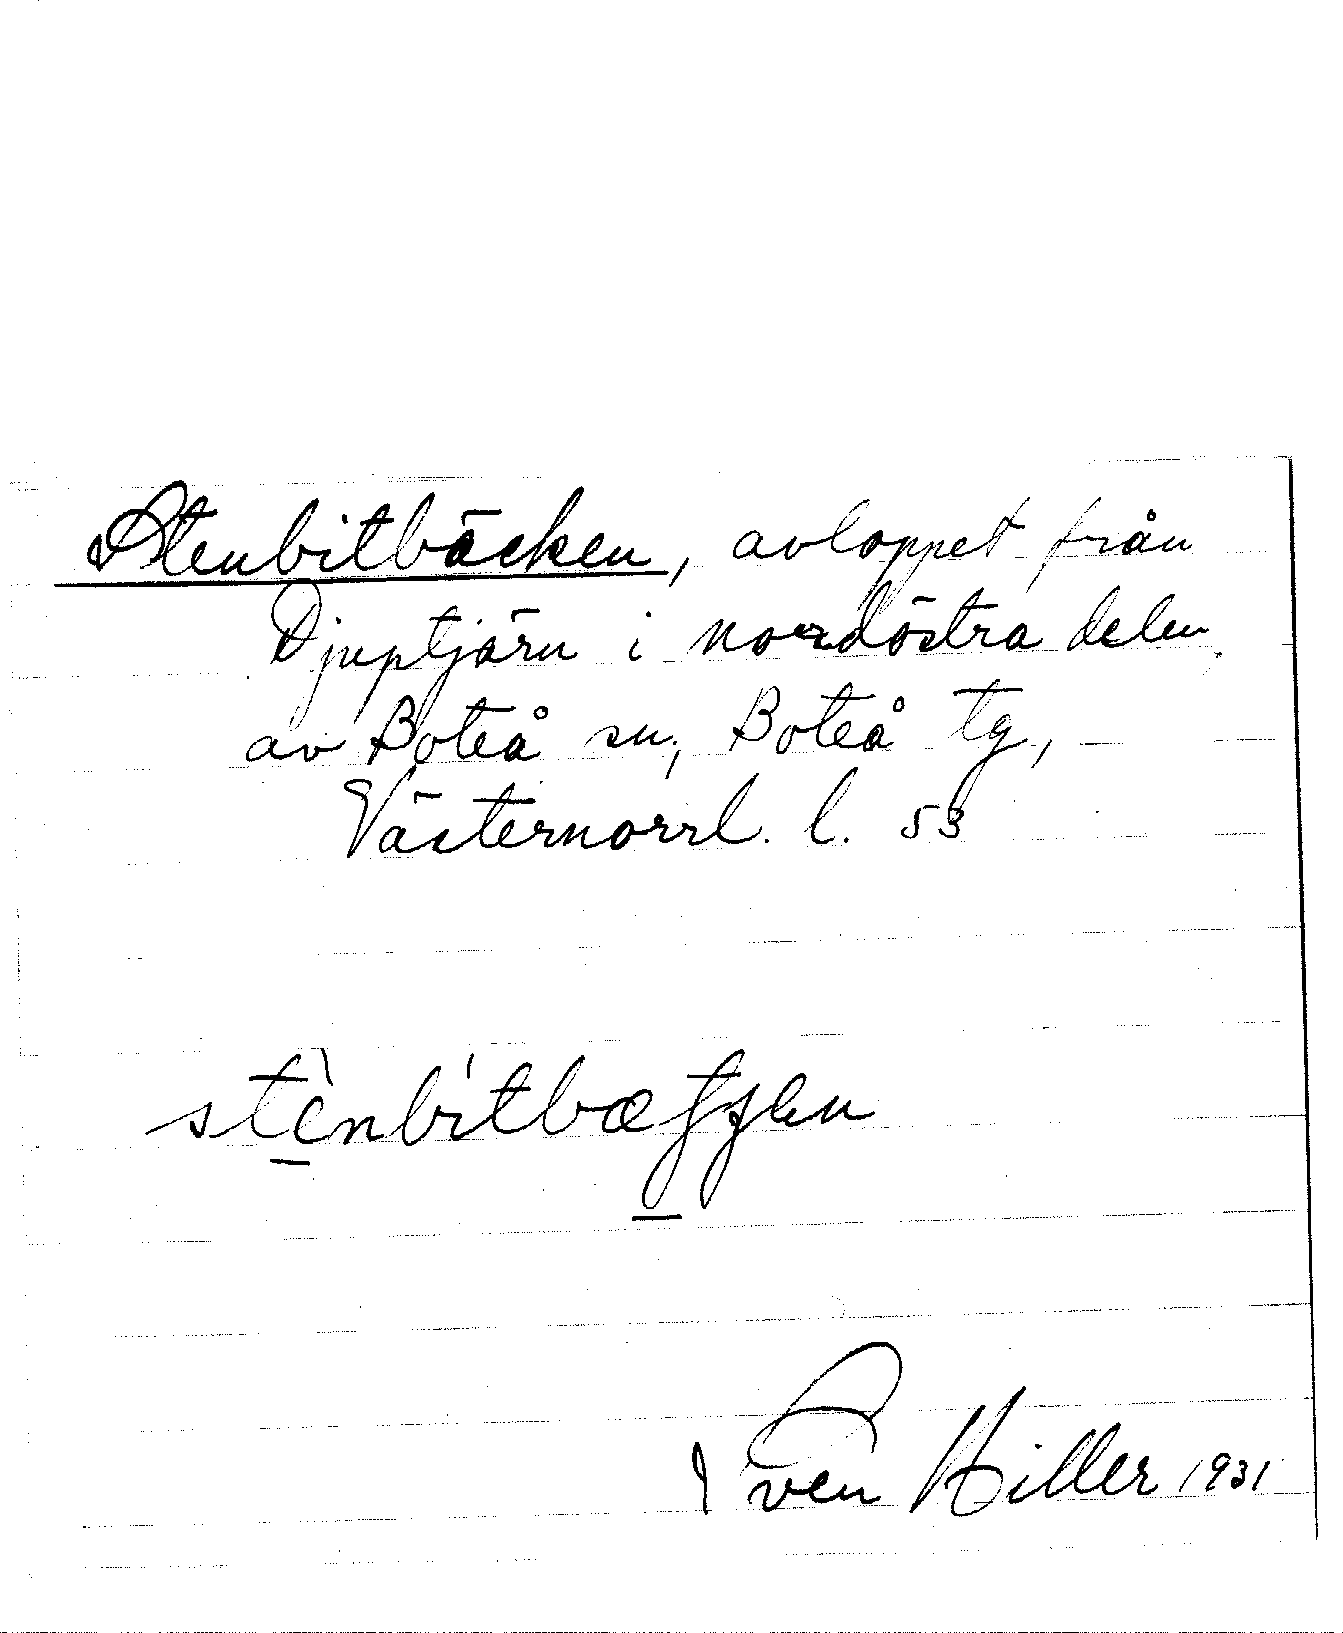 Stenbitbäcken, avloppet från
Djuptjärn i nordöstra delen
av Boteå sn, Boteå tg,
Västernorrl. l. 53
Sven Hiller 1931